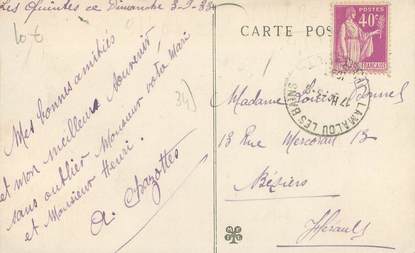 Les Quintes ce Dimanche 3-9-33
lot 6
34
Mes bonnes amitiés
et mon meilleur souvenir
sans oublier Monsieur votre Mari
et Monsieur Henri.
A. Chazottes
CARTE POS
POSTES
40c
FRANÇAISE
LAMALOU LES BAINS
Madame
13 Rue 13
Béziers
Hérault